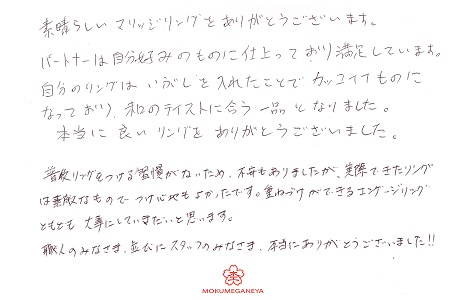 素晴らしいマリッジリングをありがとうございます。
パートナーは自分好みのものに仕上っており満足しています。
自分のリングはいぶしを入れたことでカッコイイものに
なっており、和のテイストに合う一品となりました。
本当に良いリングをありがとうございました。
普段リングをつける習慣がないため、不安もありましたが、実際できたリング
は素敵なものでつけ心地もよかったです。重ねづけができるエンゲージリング
ともども大事にしていきたいと思います。
職人のみなさま、並びにスタッフのみなさま、本当にありがとうございました!!
MOKUMEGANEYA